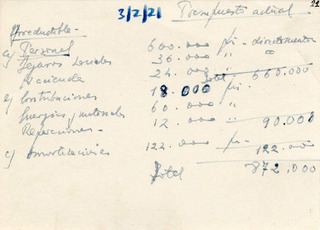 3/2/21 Presupuesto actual 22
Irreductible-
a) Personal 600.000 pts directamente
Tejares Locales 36.000 " "
Hacienda 24.000 " Total 660.000
b) Contribuciones 18 000 pts.
Energía y materiales 60.000 "
Reparaciones - 12.000 " 90.000
c) Amortizaciones 122.000 pts 122.000
Total 872,000